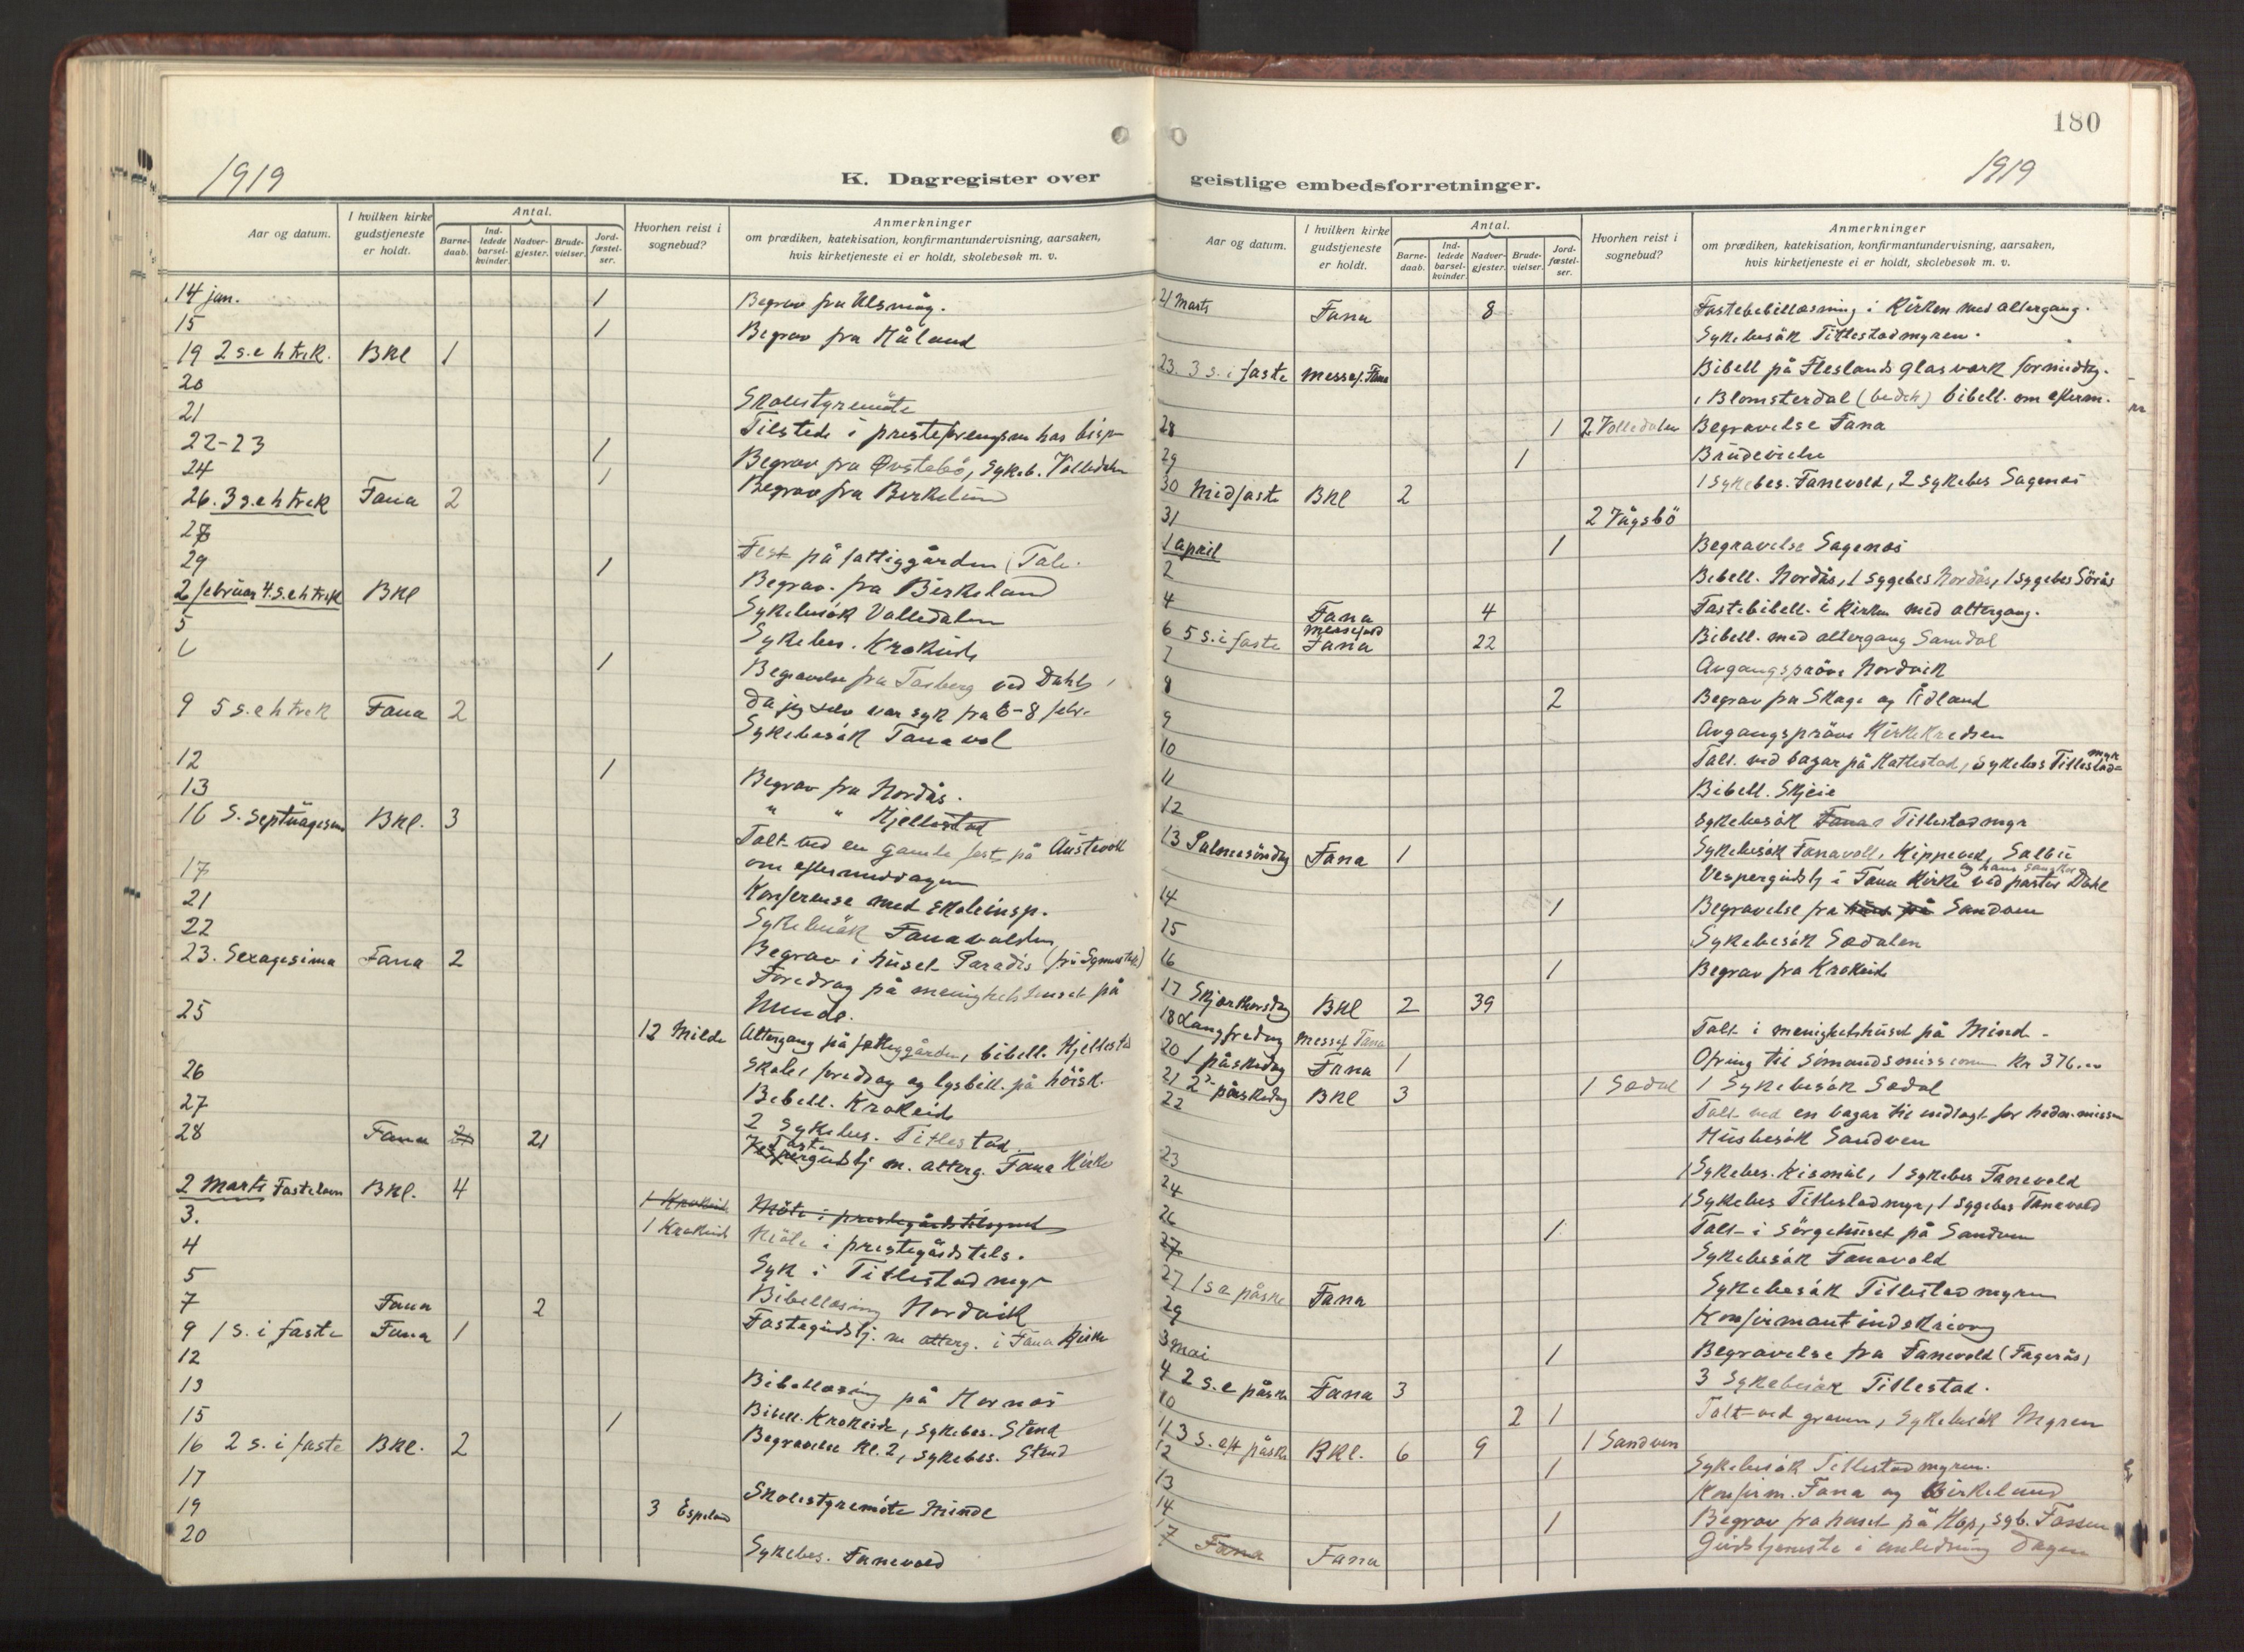 180
1919
K. Dagregister over
geistlige embedsforretninger.
1919
Aar og datum.
I hvilken kirke gudstjeneste er holdt.
Antal.
Barne-daab.
Ind-ledede barsel-kvinder.
Nadver-gjester.
Brude-vielser.
Jord-fæstel-ser.
Hvorhen reist i sognebud?
Anmerkninger
om prædiken, katekisation, konfirmantundervisning, aarsaken,
hvis kirketjeneste ei er holdt, skolebesøk m. v.
14 jan. 1 Begrav fra
15 1 Begrav fra Håland
19 2 s. e h trek. BKl 1
20 Skolestyremöte
21 Tilstede i
22-23 1 Begrav fra Øvstebö, Sykeb. Volledalen
24 1 Begrav fra Birkeland
26. 3 s. e h trek Fana 2
28
29 1 Fest på fattiggården (Tale.
Begrav. fra Birkeland
2 februar 4. s. e h trek BKl
5 Sykebesök Volledalen
6 1 Sykebes. Krokeide
Begravelse fra ved Dahl,
da jeg selv var syk fra 6-8 febr.
9 5 s. e h trek Fana 2
Sykebesök Fanavol
12 1
13 Begrav fra Nordås.
16 S. Septuagesima BKl. 3
" " Hjellestad
Talt ved en gamle fest på Austevoll
om eftermiddagen
17 Konferense med skoleinsp.
21 Sykebesök Fanavolden
22 Begrav i huset Paradis
23. Sexagesima Fana 2
Foredrag på menighetshuset på
Minde.
25 12 Milde Altergang på fattiggården, bibell. Hjellestad
26 Skole foredrag og lysbill. på höisk.
27 Bibell. Krokeid
28 Fana 21 2 Sykebes. Titlestad
Faste gudstj m. alterg. Fana Kirke
2 Marts Fastelavn BKl. 4
3. 1 Krokeide Möte i prestegårdstilsynet
4 1 Krokeide Möte i prestegårdstils.
5 Syk i Titlestad myr
7 Fana 2 Bibellæsing Nordvik
Fastegudstj. m alterg. i Fana Kirke
9 1 S. i faste Fana 1
12
13 Bibellæsing på Hornæs
15 1 Bibell. Krokeide, Sykebes. Stend
16 2 s. i faste BKl. 2
Begravelse kl. 2, Sykebes. Stend
17 Skolestyremöte Minde
19 3 Espeland
20 Sykebes. Fanevold
Aar og datum.
I hvilken kirke gudstjeneste er holdt.
Antal.
Barne-daab.
Ind-ledede barsel-kvinder.
Nadver-gjester.
Brude-vielser.
Jord-fæstel-ser.
Hvorhen reist i sognebud?
Anmerkninger
om prædiken, katekisation, konfirmantundervisning, aarsaken,
hvis kirketjeneste ei er holdt, skolebesøk m. v.
21 Marts Fana 8 Fastebibellæsning i Kirken med altergang.
Sykebesök Titlestadmyren.
23. 3 s. i faste messef. Fana Bibell på Fleslands Glasværk formidag.
i Blomsterdal (bedeh) bibell. om efterm.
28 1 2 Volledalen Begravelse Fana
29 1 Brudevielse
30 Midfaste BKl 2 1 Sykebes. Fanevold, 2 sykebes Sagenæs
31 2 Vågsbö
1 april 1 Begravelse Sagenæs
2 Bibell. Nordås, 1 sygebes Nordås, 1 sygebes Sörås
4 Fana 4 Fastebibell. i Kirken med altergang.
6 5 s. i faste messefald Fana 22 Bibell. med altergang Samdal
7 Avgangspröve Nordvik
8 2 Begrav fra Skage og Ådland
9 Avgangspröve Kirkekredsen
10 Talt. ved basar på Kattestad, Sykebes Titlestad=
myr
11 Bibell. Skjeie
12 Sykebesök Fana Titlestadmyr
13 Palmesöndag Fana 1 Sykebesök Fanavoll,
Vespergudstj i Fana Kirke ved pastor Dahl
og hans Sangkor
14 1 Begravelse fra Sandven
15 Sykebesök Sædalen
16 1 Begrav fra Krokeide
17 Skjærthorsdag BKl 2 39
18 Langfredag Messef Fana Talt i menighetshuset på Mind-
20 1 påskedag Fana 1 Ofring til Sömandsmissionen Kr 376.00
21 2 påskedag BKl 3 1 Sædal 1 Sykebesök Sædal
22 Talt ved en basar til indtægt for hedn. missn
Husbesök Sandven
23 1 Sykebes. Kismul, 1 sykebes Fanevold
24 1 Sykebes Titlestadmyr, 1 Sygebes Fanevold
26 1 Talt i Sörgehuset på Sandven
27 Sykebesök Fanavold
27 1 s e påske Fana Sykebesök Titlestadmyren
29 Konfirmantindskrivng
3 mai 1 Begravelse fra Fanevold (Fagerås)
4 2 s. e påske Fana 3 3 Sykebesök Titlestad.
10 2 1 Talt ved graven, Sykebesök Myren
11 3 s. eft påske BKl. 6 9 1 Sandven
12 1 Sykebesök Titlestadmyren.
13 Konfirm. Fana og Birkeland
14 1 Begrav fra huset på Hop, syb. Fossen
17 Fana Fana Gudstjeneste i anledning Dagen